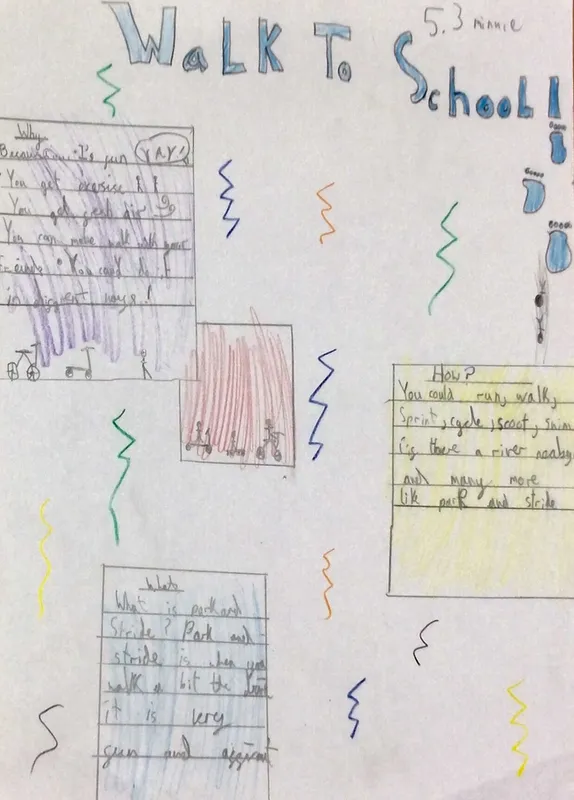 WALK TO SCHOOL!
5.3 minnie
Why
Because... • I's fun YAY!
• You get exercise
You get fresh air
You can make walk with your
friends • You could do it
in diffrent ways!
How?
You could run, walk,
Sprint, cycle, scoot, swim
i's there a river nearby
and many more
like park and stride
What?
What is park and
Stride? Park and
stride is when you
walk a bit the
it is very
gun and